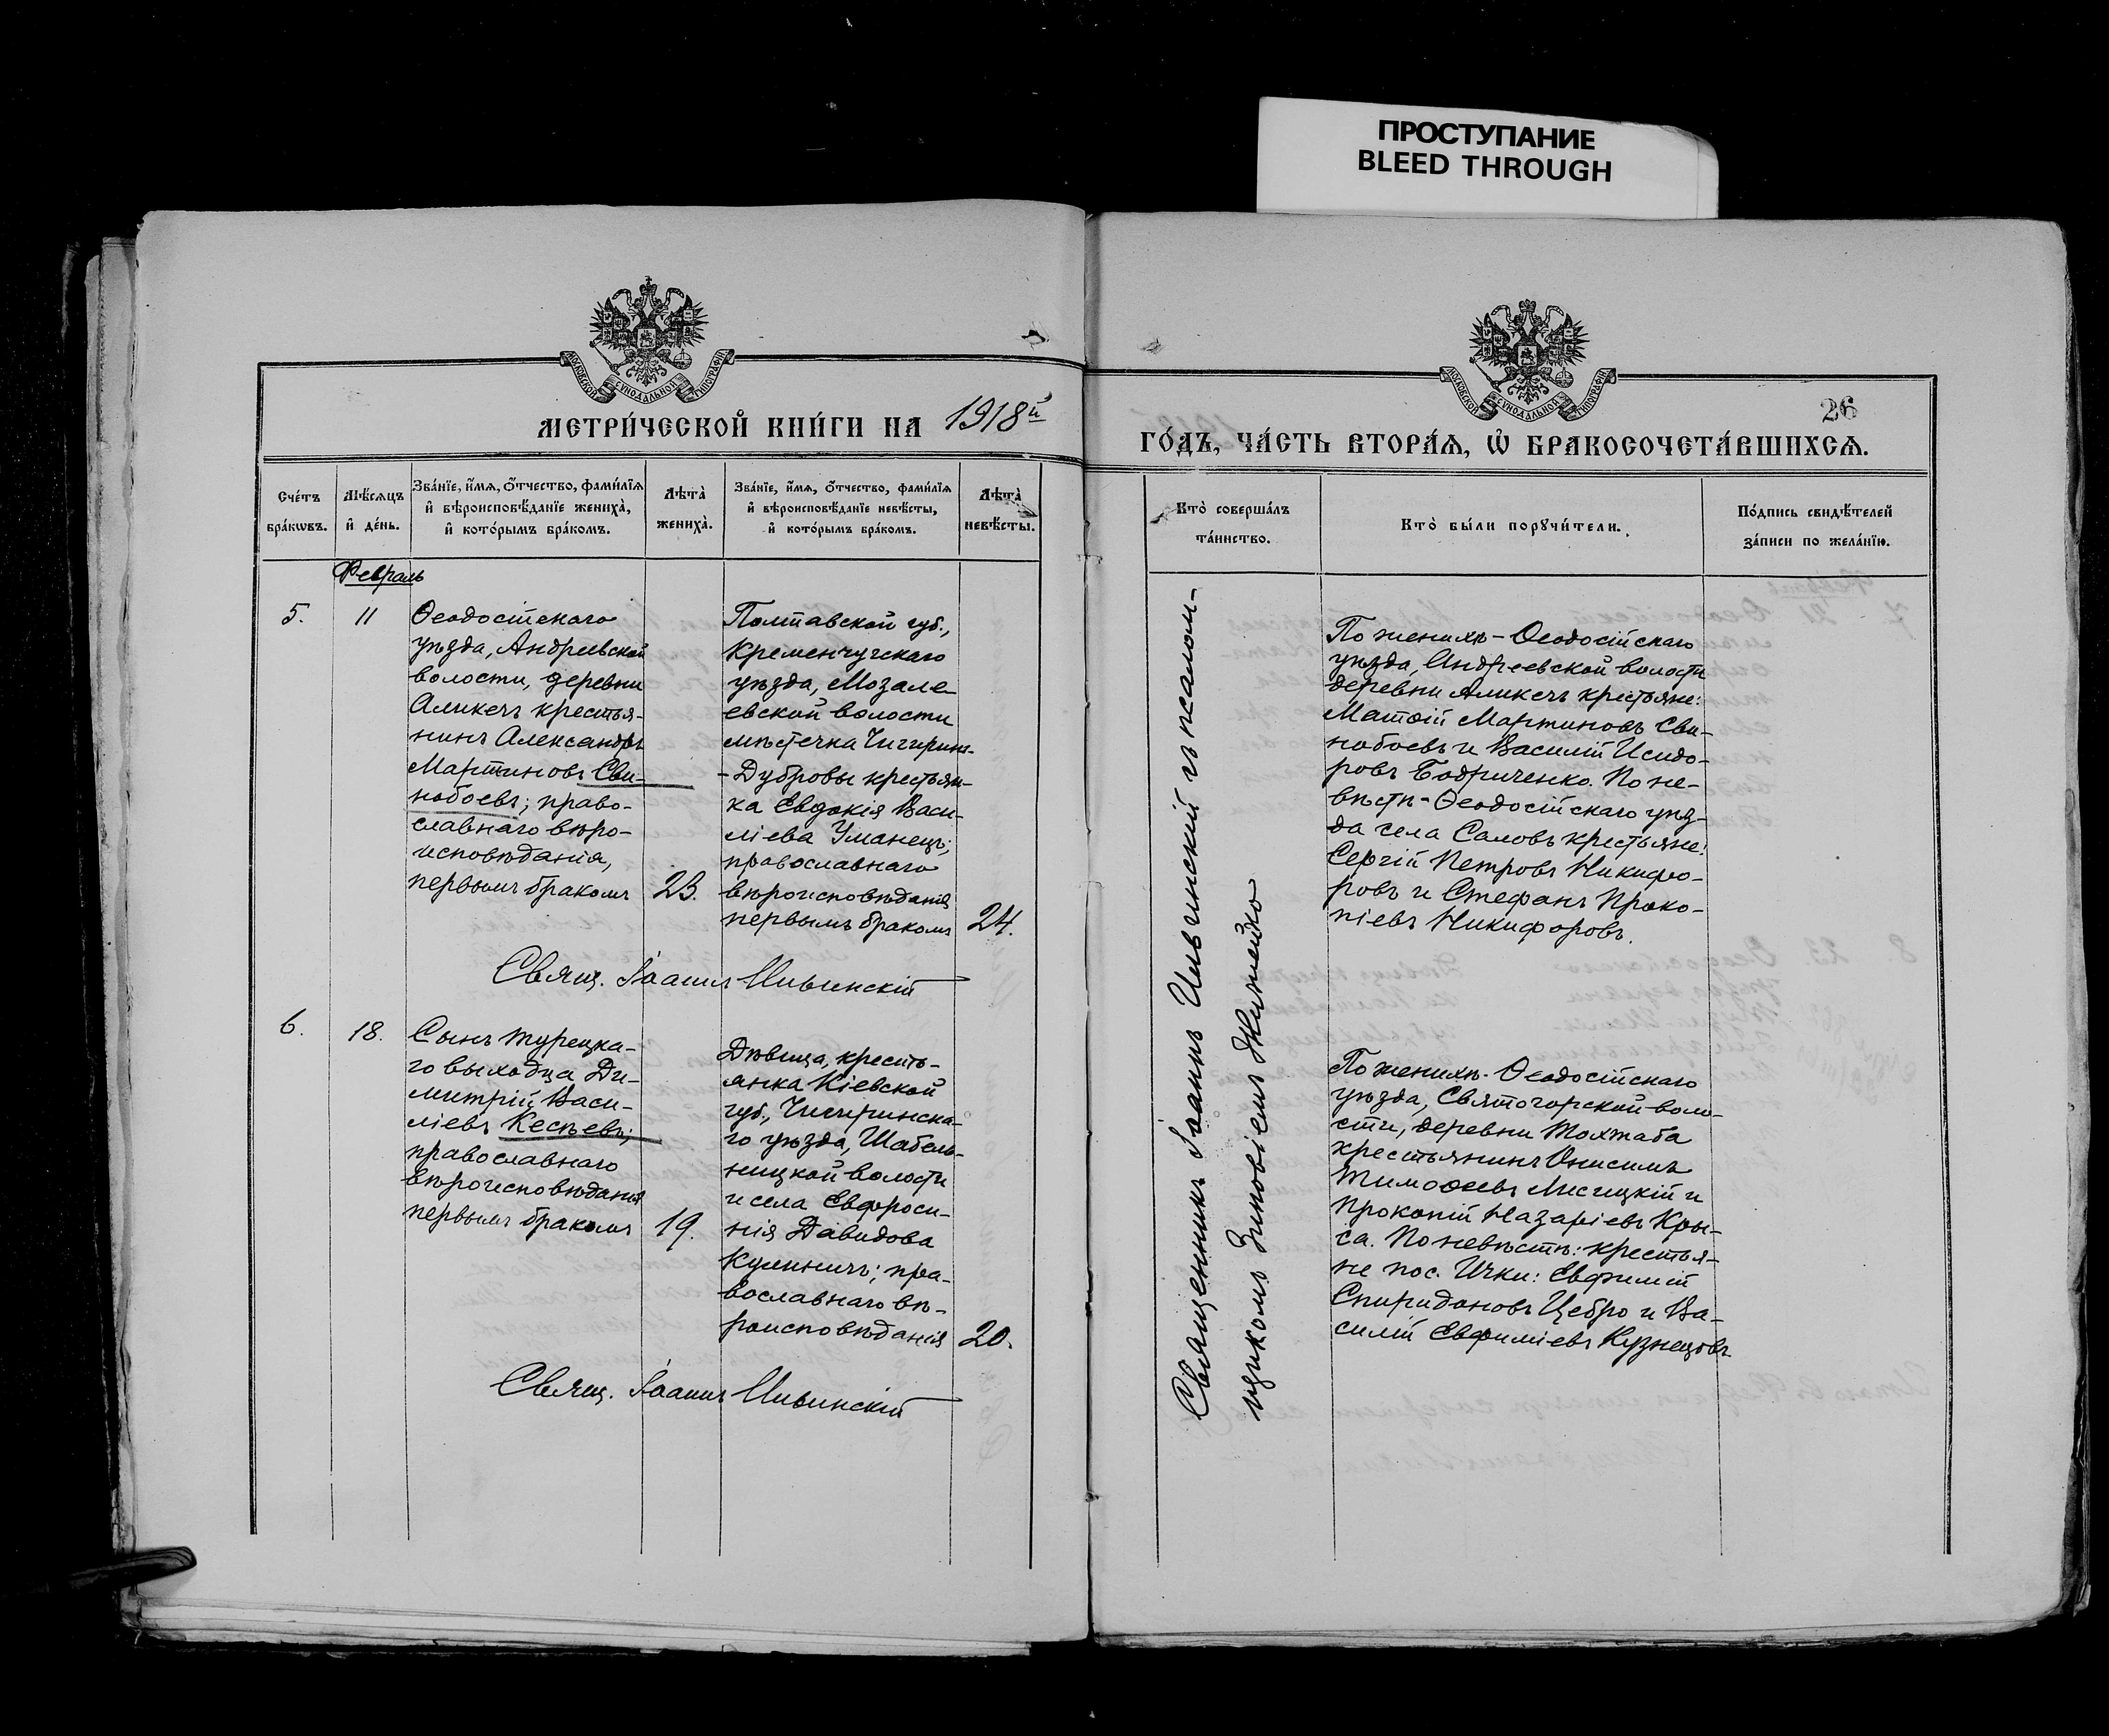 ПРОСТУПАНИЕ
BLEED THROUGH
МОСКОВСКОЙ СѴНОДАЛЬНОЙ ТИПОГРАФІИ
МЕТРИ́ЧЕСКОЙ КНИ́ГИ НА 1918й
Сче́тъ бра́кωвъ.
Мѣ́сяцъ и҆ де́нь.
Зва́нїе, и҆́мѧ, ѻ҆́тчество, фами́лїѧ
и҆ вѣроисповѣ́данїе жениха̀,
и҆ кото́рымъ бра́комъ.
Лѣта̀ жениха̀.
Зва́нїе, и҆́мѧ, ѻ҆́тчество, фами́лїѧ
и҆ вѣроисповѣ́данїе невѣ́сты,
и҆ кото́рымъ бра́комъ.
Лѣта̀ невѣ́сты.
Февраль
5.
11
Ѳеодосійскаго
уѣзда, Андреевской
волости, деревни
Аликечъ крестья-
нинъ Александръ
Мартиновъ Сви-
нобоевъ; право-
славнаго вѣро-
исповѣданія,
первымъ бракомъ
23.
Полтавской губ.,
Кременчугскаго
уѣзда, Мозале-
евской волости
мѣстечка Чигирин-
-Дубровы крестьян-
ка Евдокія Васи-
ліева Уманецъ;
православнаго
вѣроисповѣданія
первымъ бракомъ
24.
Свящ. Іоаннъ Ильинскій
6.
18.
Сынъ турецка-
го выходца Ди-
митрій Васи-
ліевъ Кесѣевъ;
православнаго
вѣроисповѣданія
первымъ бракомъ
19.
Дѣвица, кресть-
янка Кіевской
губ., Чигиринска-
го уѣзда, Шабель-
ницкой волости
и села Евфроси-
нія Давидова
Кулиничъ; пра-
вославнаго вѣ-
роисповѣданія
20.
Свящ. Іоаннъ Ильинскій
МОСКОВСКОЙ СѴНОДАЛЬНОЙ ТИПОГРАФІИ
26
ГО́ДЪ, ЧА́СТЬ ВТОРА́Ѧ, Ѽ БРАКОСОЧЕТА́ВШИХСѦ.
Кто̀ соверша́лъ
та́инство.
Кто̀ бы́ли порꙋчи́тели.
По́дпись свидѣ́телей
за́писи по жела́нїю.
Священникъ Іоаннъ Ильинскій съ псалом-
щикомъ Зиновіемъ Жилейко
По женихѣ - Ѳеодосійскаго
уѣзда, Андреевской волости
деревни Аликечъ крестьяне:
Матѳій Мартиновъ Сви-
нобоевъ и Василій Исидо-
ровъ Бодриченко. По не-
вѣстѣ - Ѳеодосійскаго уѣз-
да села Саловъ крестьяне:
Сергій Петровъ Никифо-
ровъ и Стефанъ Проко-
піевъ Никифоровъ.
По женихѣ - Ѳеодосійскаго
уѣзда, Святогорской воло-
сти, деревни Тохтаба
крестьянинъ Онисимъ
Тимоѳеевъ Лисицкій и
Прокопій Назаріевъ Кры-
са. По невѣстѣ: крестья-
не пос. Ички: Евфимій
Спиридоновъ Цебро и Ва-
силій Евфиміевъ Кузнецовъ